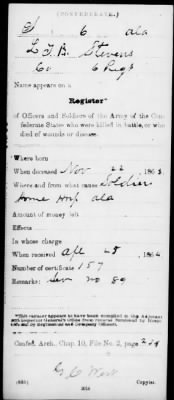 (CONFEDERATE.)
S 6 Ala
L. T. B. Stevens
Co 6 Regt
Name appears on a
Register*
of Officers and Soldiers of the Army of the Con-
federate States who were killed in battle, or who
died of wounds or disease.
Where born
When deceased Nov 22, 1863.
Where and from what cause Soldier
Home Hosp Ala
Amount of money left
Effects
In whose charge
When received Apl 28, 1864
Number of certificate 157
Remarks: No 89
*This register appears to have been compiled in the Adjutant
and Inspector General's Office from returns furnished by Hospi-
tals and by Regimental and Company Officers.
Confed. Arch., Chap. 10, File No. 2, page
G. C. West
(635)
Copyist.